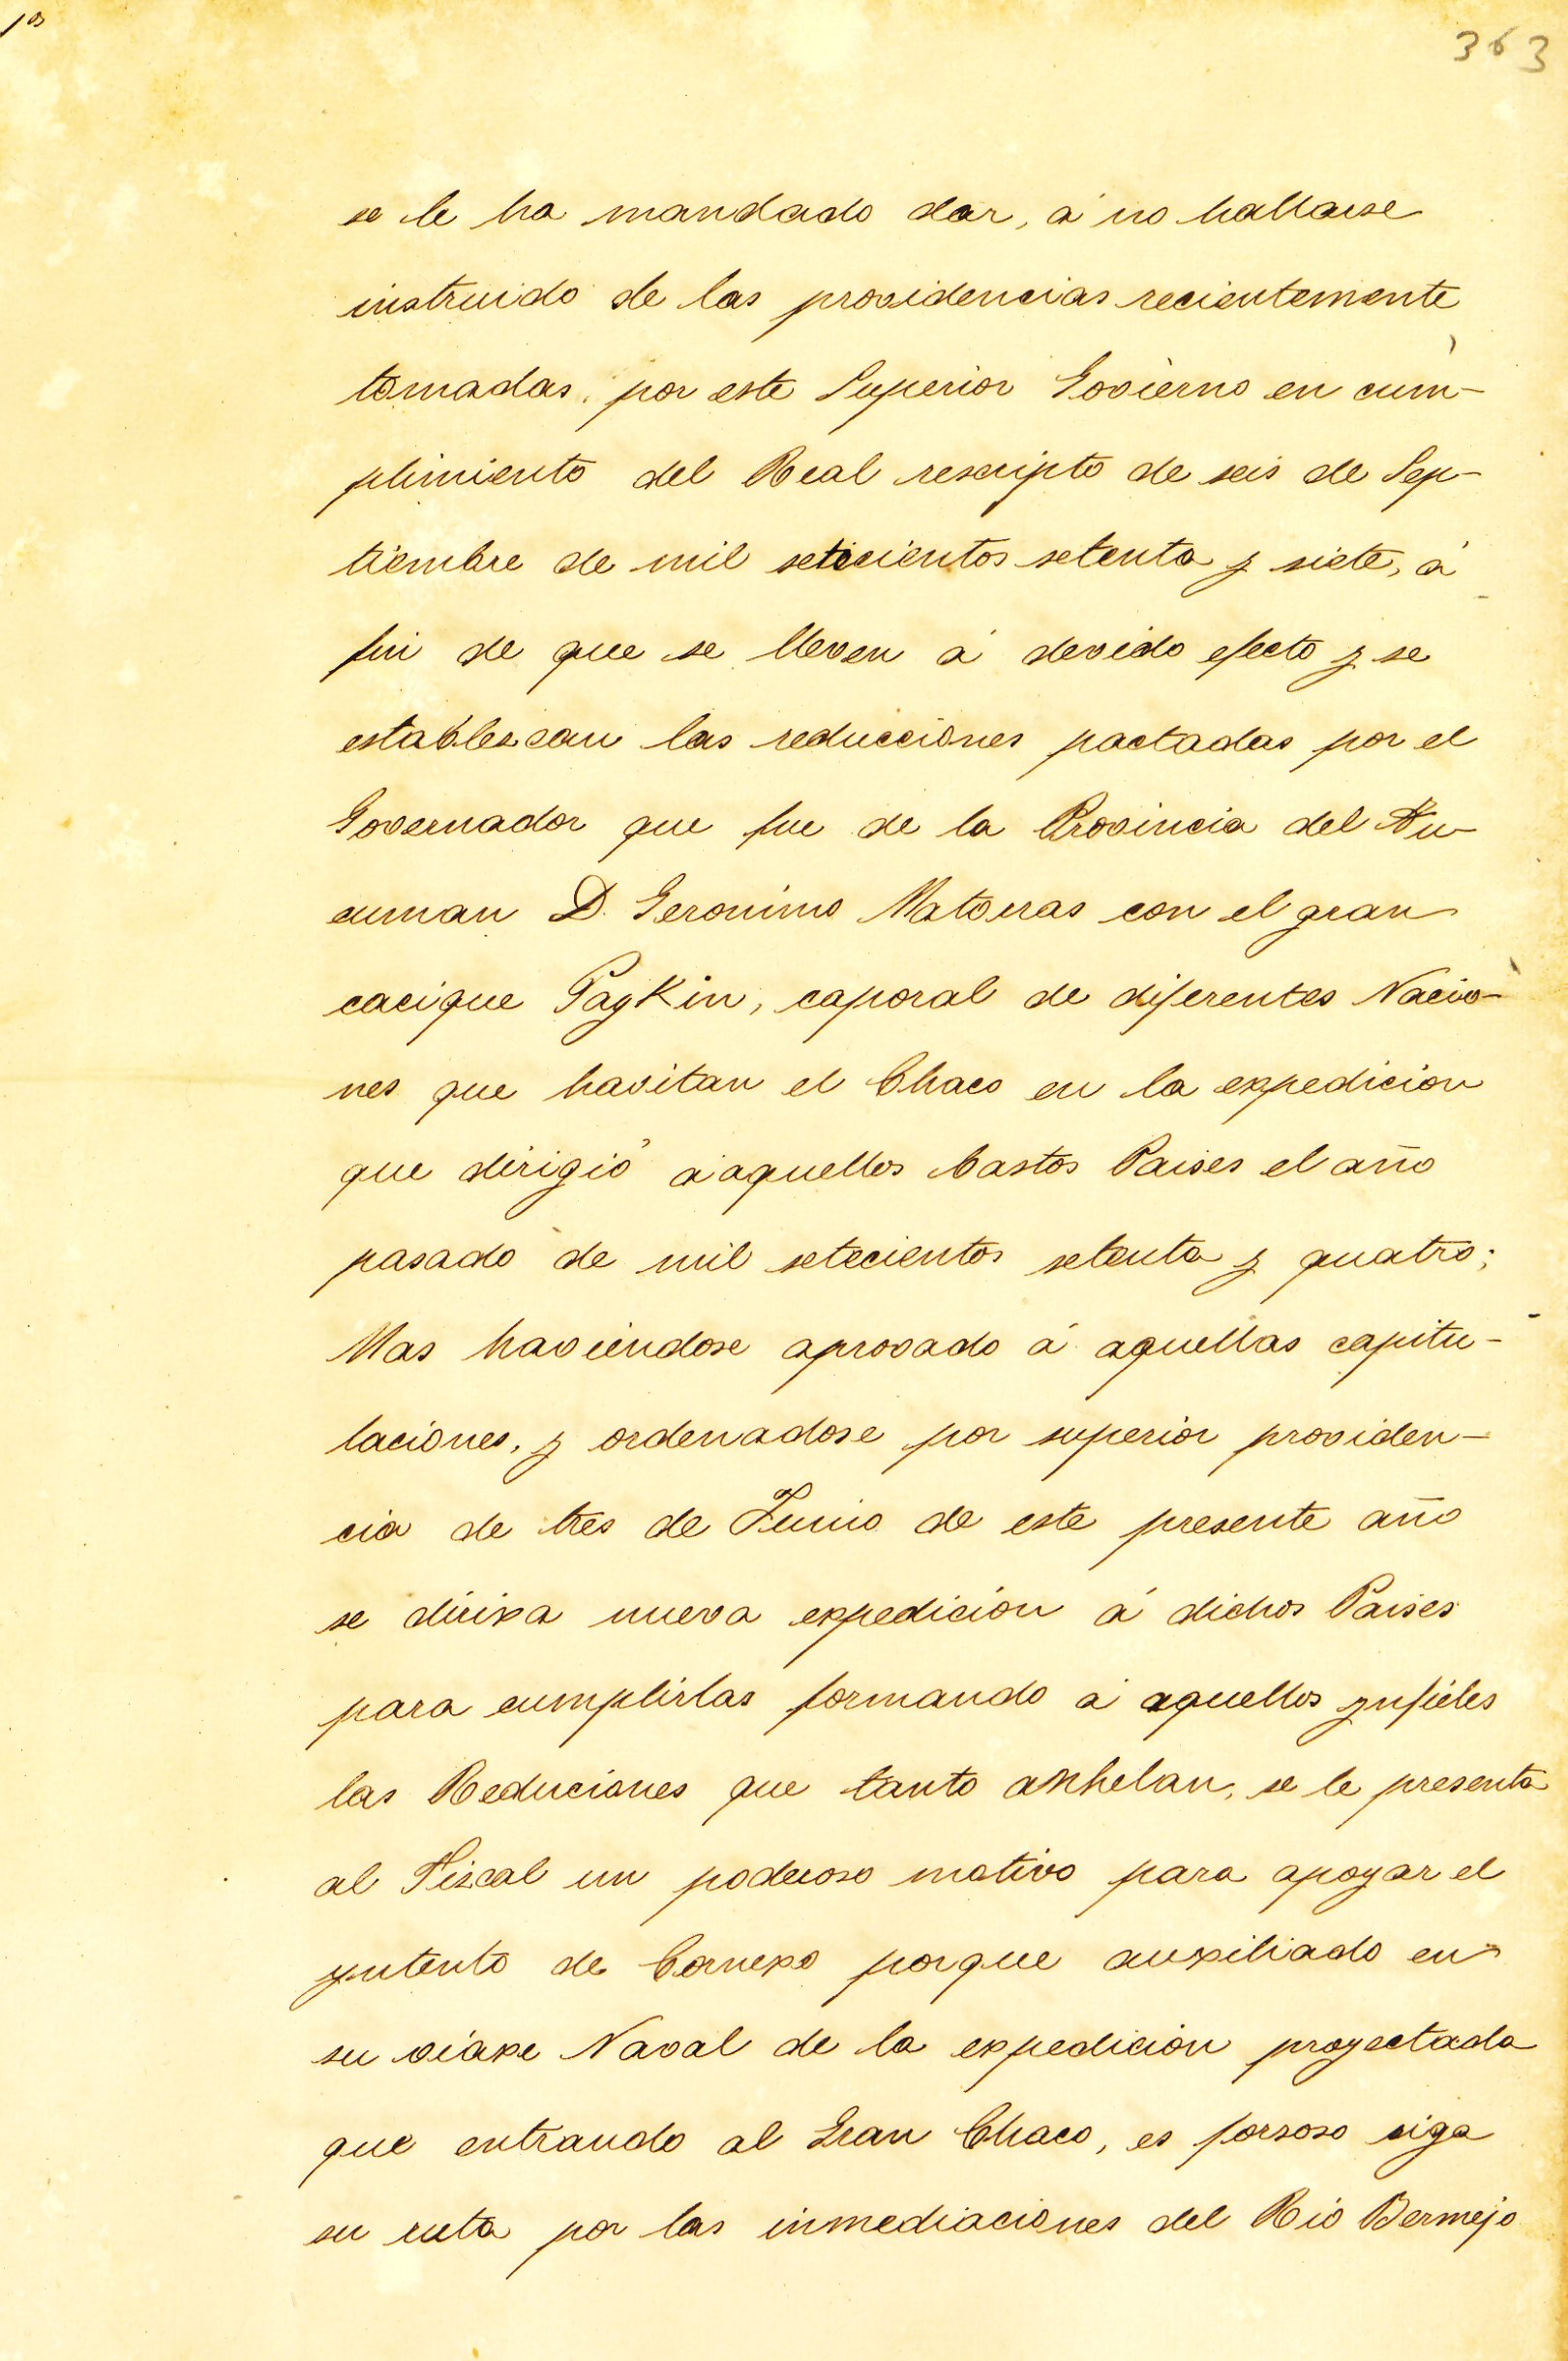 363
se le ha mandado dar, á no hallarse
instruido de las providencias recientemente
tomadas, por este Superior Govierno en cum-
plimiento del Real rescripto de seis de Sep-
tiembre de mil setecientos setenta y siete, á
fin de que se lleven á devido efecto y se
establescan las reducciones pactadas por el
Governador que fue de la Provincia del Tu-
cuman D. Geronimo Matorras con el gran
cacique PayKin, caporal de diferentes Nacio-
nes que havitan el Chaco en la expedicion
que dirigió á aquellos bastos Paises el año
pasado de mil setecientos setenta y quatro;
Mas haviendose aprovado á aquellas capitu-
laciones, y ordenadose por superior providen-
cia de tres de Junio de este presente año
se dirixa nueva expedición á dichos Paises
para cumplirlas formando á aquellos ynfieles
las Reduciones que tanto anhelan, se le presenta
al Fiscal un poderoso motivo para apoyar el
yntento de Cornexo porque auxiliado en
su viaxe Naval de la expedición proyectada
que entrando al Gran Chaco, es forsoso siga
su ruta por las inmediaciones del Rio Bermejo